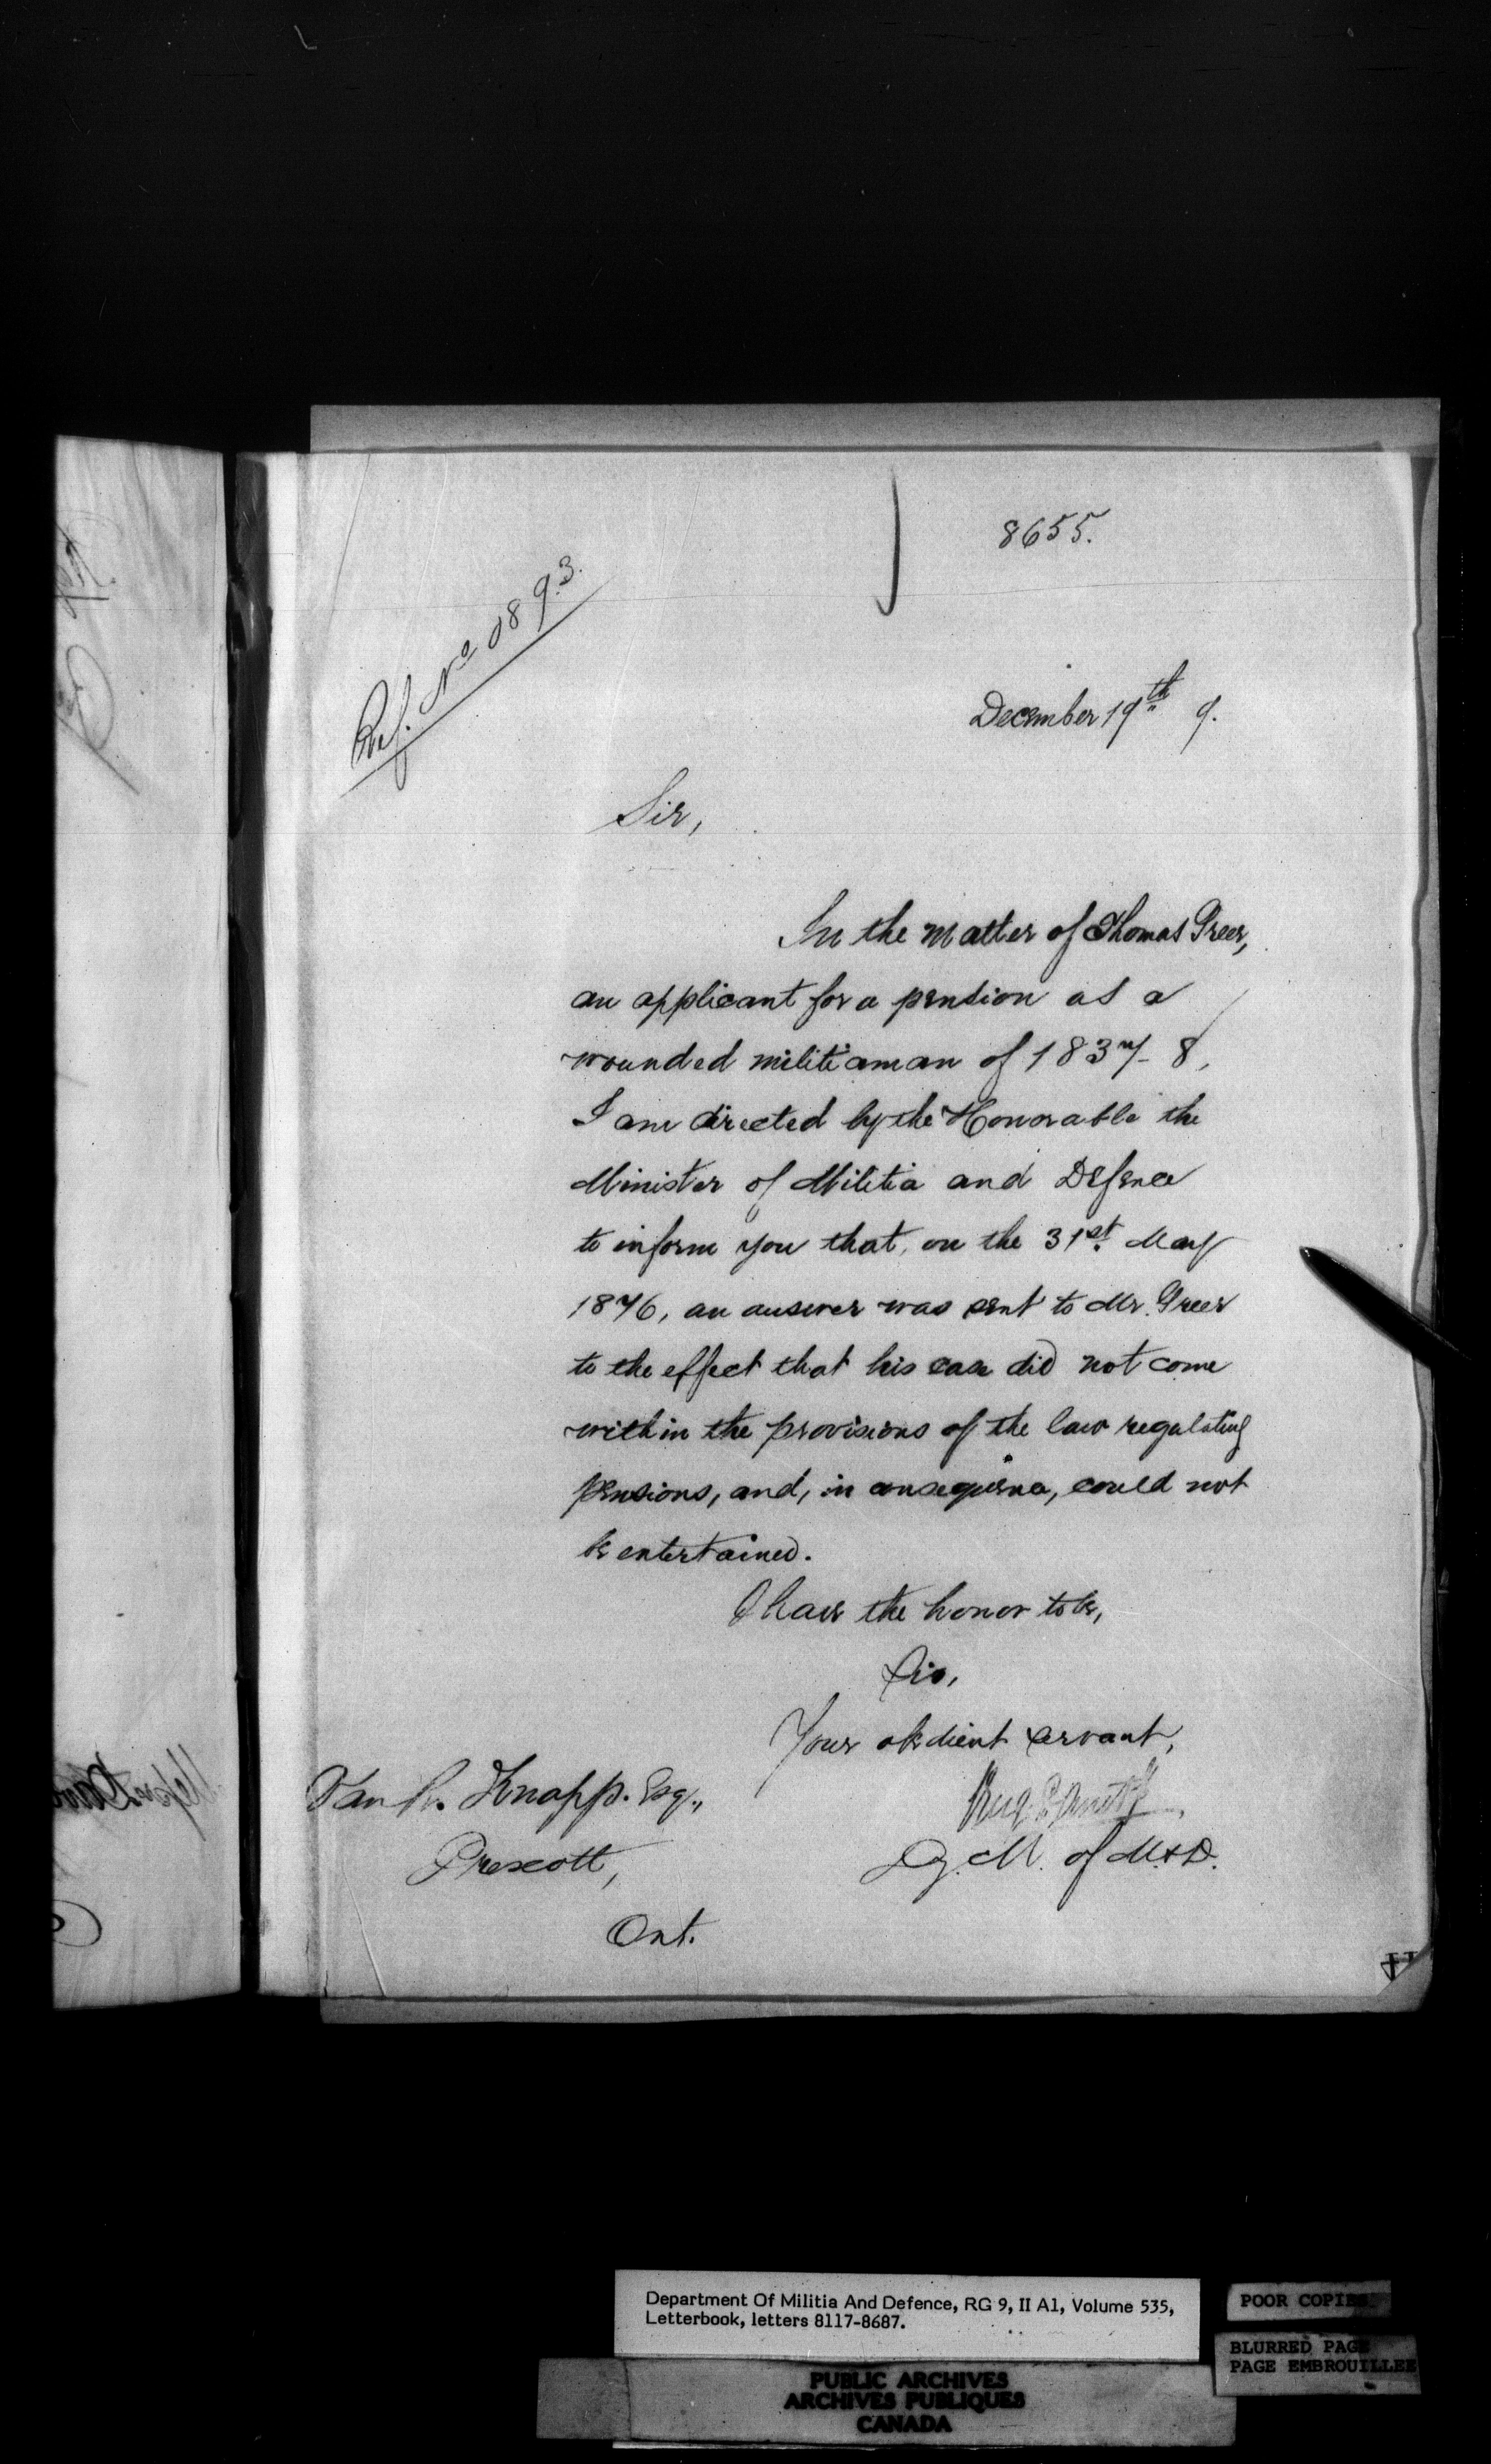 8655.
Ref. No 0893.
December 19th 9.
Sir,
In the matter of Thomas Greer,
an applicant for a pension as a
wounded militiaman of 1837-8,
I am directed by the Honorable the
Minister of Militia and Defence
to inform you that, on the 31st May
1876, an answer was sent to Mr. Greer
to the effect that his case did not come
within the provisions of the law regulating
pensions, and, in consequence, could not
be entertained.
I have the honor to be,
Sir,
Your obedient servant,
Knapp. Esq.,
Prescott,
Ont.
Dy. M. of M. & D.
Department Of Militia And Defence, RG 9, II A1, Volume 535,
Letterbook, letters 8117-8687.
POOR COPIES
BLURRED PAGE
PAGE EMBROUILLEE
PUBLIC ARCHIVES
ARCHIVES PUBLIQUES
CANADA